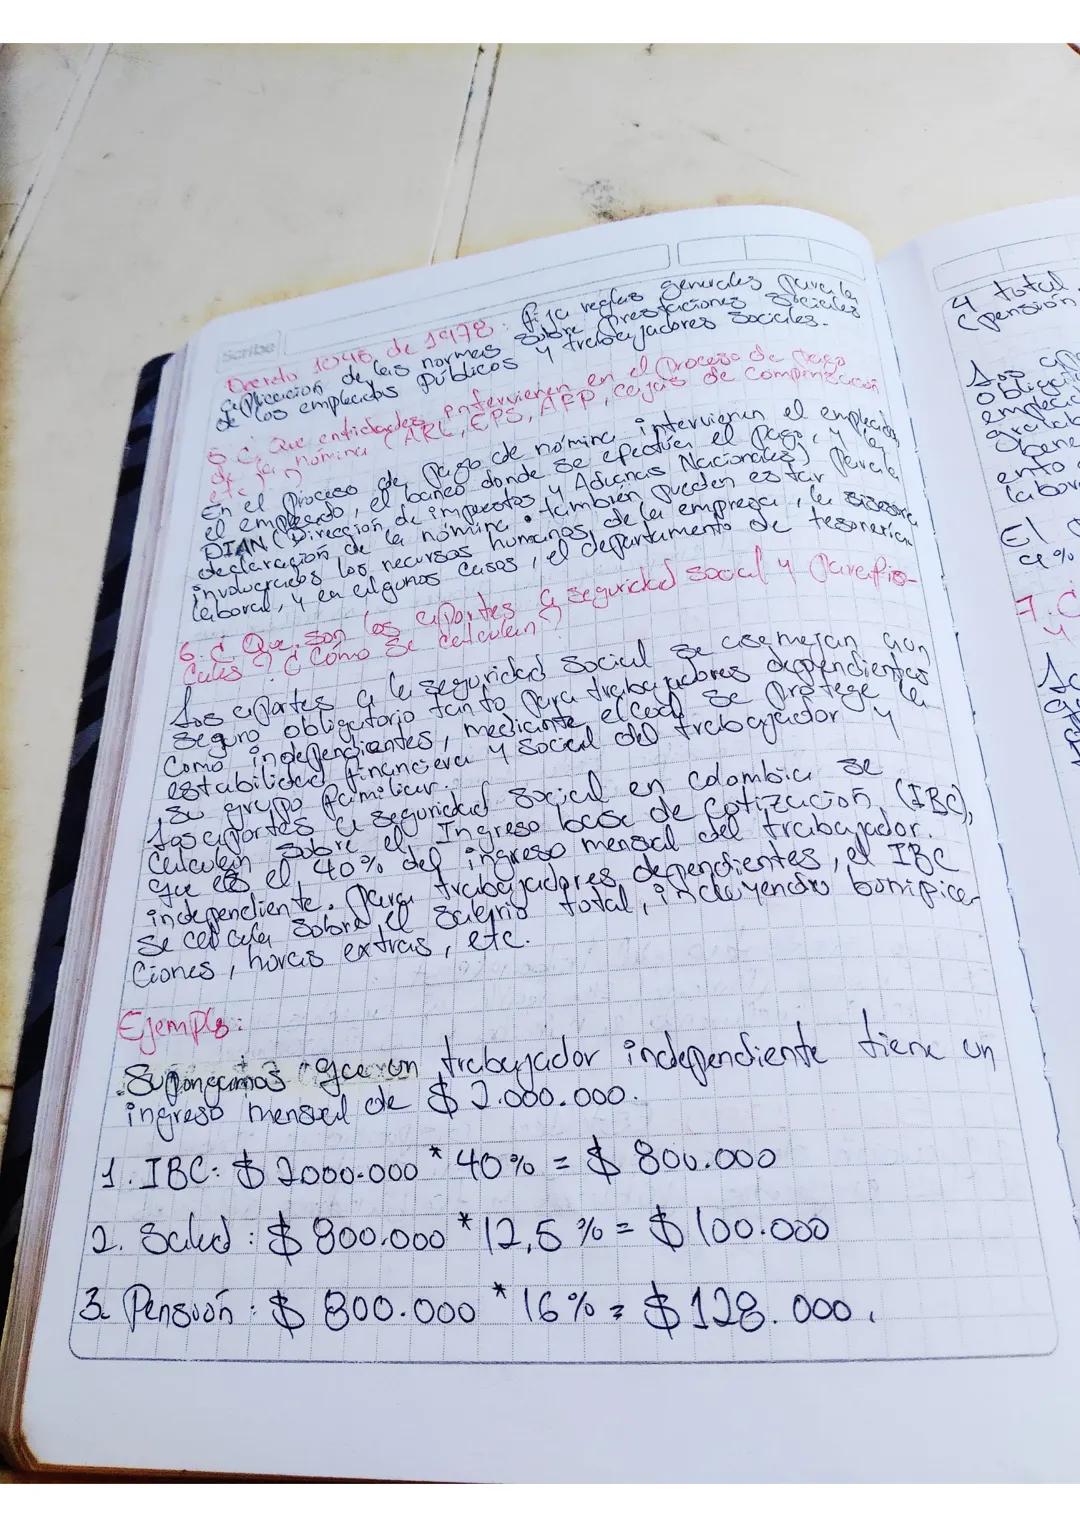 Scribe
Decreto 1045 de 1978: fija reglas generales para la
aplicación de las normas sobre prestaciones sociales
de los empleados públicos y trabajadores sociales.
5. ¿ Que entidades intervienen en el proceso de pago
de la nómina (ARL, EPS, AFP, cajas de compensación
etc)?
En el proceso de pago de nómina intervienen el empleador,
el empleado, el banco donde se efectúa el pago, y la
DIAN (Dirección de impuestos y Aduanas Nacionales) para la
declaración de la nómina. también pueden estar
involucrados los recursos humanos de la empresa, la asesora
laboral, y en algunos casos, el departamento de tesoreria
6. ¿ Que son los aportes a seguridad social y parafis-
cales? ¿ Cómo se calculan?
Los aportes a la seguridad social se asemejan aun
seguro obligatorio tanto para trabajadores dependientes
como independientes, mediante el cual se protege la
estabilidad financiera y social del trabajador y
su grupo familiar.
Los aportes a seguridad social en colombia se
calculan sobre el Ingreso base de cotización (IBC),
que es el 40% del ingreso mensual del trabajador.
independiente. para trabajadores dependientes, el IBC
se calcula sobre el salario total, incluyendo bonifica
ciones, horas extras, etc.
Ejemplo:
Supongamos que un trabajador independiente tiene un
ingreso mensual de $ 2.000.000.
1. IBC: $ 2000.000 * 40% = $ 800.000
2. Salud: $ 800.000 * 12,5 % = $ 100.000
3. Pensión: $ 800.000 * 16% = $ 128.000.
4 total
(pensión
Los
obligaci
emplead
ento
labor
El
4%
7. ¿
y